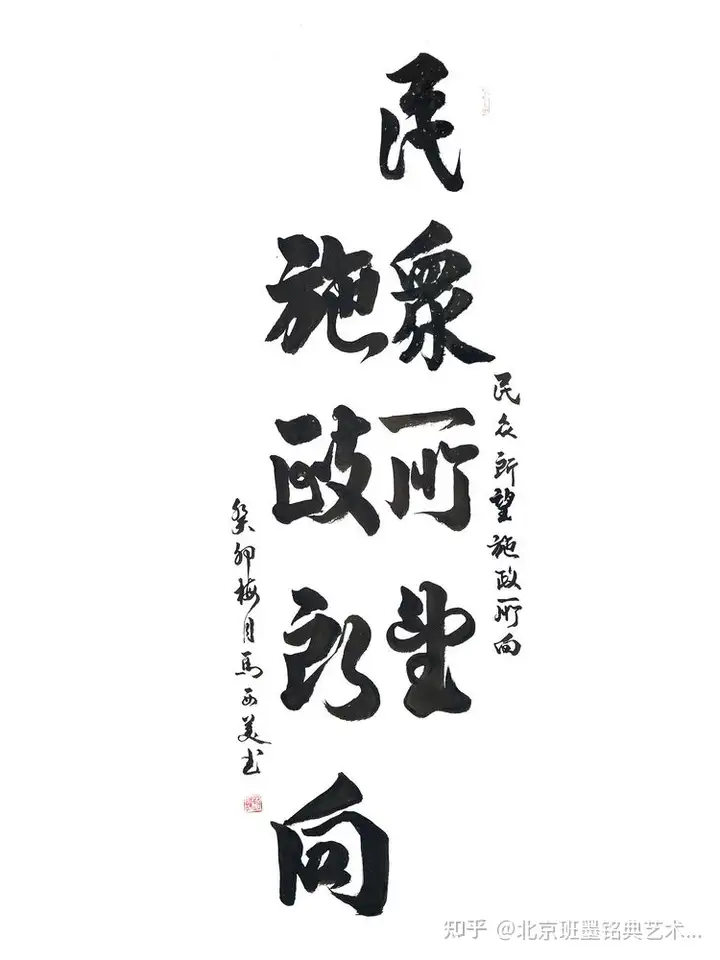 民眾所望
施政所向
民众所望施政所向
癸卯梅月馬西美书
知乎 @北京班墨铭典艺术...